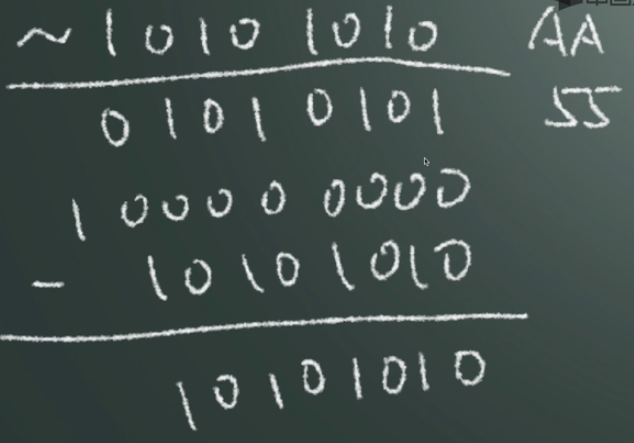 ~ 1010 1010 AA
0101 0101 55
1 0000 0000
- 1010 1010
1010 1010